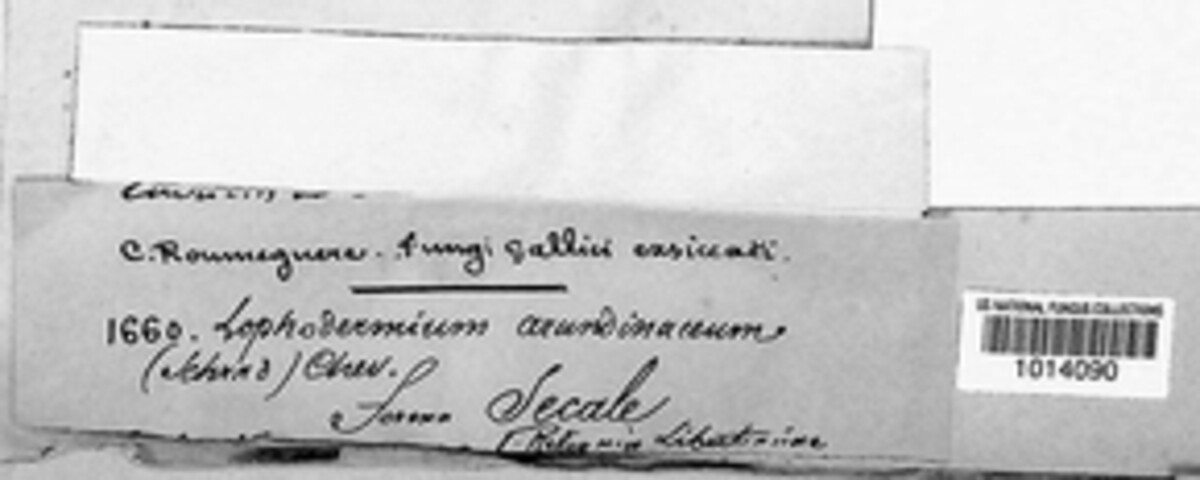 C. Roumeguere. Fungi gallici exsiccati.
1660. Lophodermium arundinaceum
(Schrad) Chev.
Forma Secale
(Reliquiæ Libertianæ
US NATIONAL FUNGUS COLLECTIONS
1014090